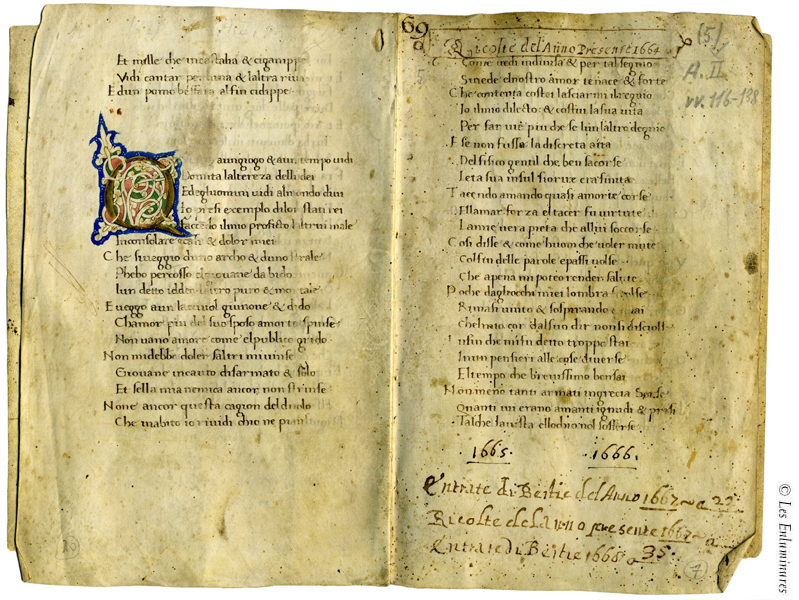 Et mille che incastalia & eiganippe
Vidi cantar per luna & laltra riva
E dun pomo beffata al fin cidippe
Q
aungiogo & aun tempo uidi
Domita laltereza delli dei
E degluomini uidi al mondo diui
Io presi exemplo dilor stati rei
faccedo il mio profisto laltrui male
Inconsolare & dolor miei
Che sio ueggio duno archo & duno strale
Phebo percosso el giouane da bido
Iun detto iddeo laltro puro & mortale
E ueggo a un lacciuol giunone & dido
Chamor pio del suo sposo amorte spinse
Non uano amore come el publico grido
Non midebbe doler saltri mi uinse
Giouane incauto disarmato & solo
Et sella mia nemica ancor non strinse
None ancor questa cagion del duolo
Che inabito io riuidi chio ne piansi
69
Ricolte del Anno Presente 1664
(5)
A. II
vv. 116-138
Come uedi indiuisa & per tal segnio
Si uede el nostro amor tenace & forte
Che contenta costei lasciarmi ilregnio
Io ilmio dilecto & costui lasua uita
Per far uie piu che se lun laltro degnio
E se non fusse la discreta aita
Del fisico gentil che ben sacorse
Leta sua insul fiorire era finita
Tacendo amando quasi amorte corse
Ellamar forza el tacer fu uirtute
La mie uera pieta che allui soccorse
Cosi disse & come huom che uoler mute
Col fin delle parole epassi uolse
Che apena mi poteo render salute
Poche dagliocchi miei lombra si tolse
Rimasi uinto & sospirando
Chelmio cor dal suo dir non si disciolse
Infin che mi fu detto troppo stai
Inun pensieri alle cose diuerse
El tempo che breuissimo ben sai
Non meno tanti armati ingrecia
Quanti iui erano amanti ignudi & presi
Talche la uista ellochio nol sofferse
1665. 1666.
Entrate di Bestie del Anno 1667 a 22
Ricolte del Anno presente 1667 a
Entrate di Bestie 1668 a 35.
(7)
© Les Enluminures